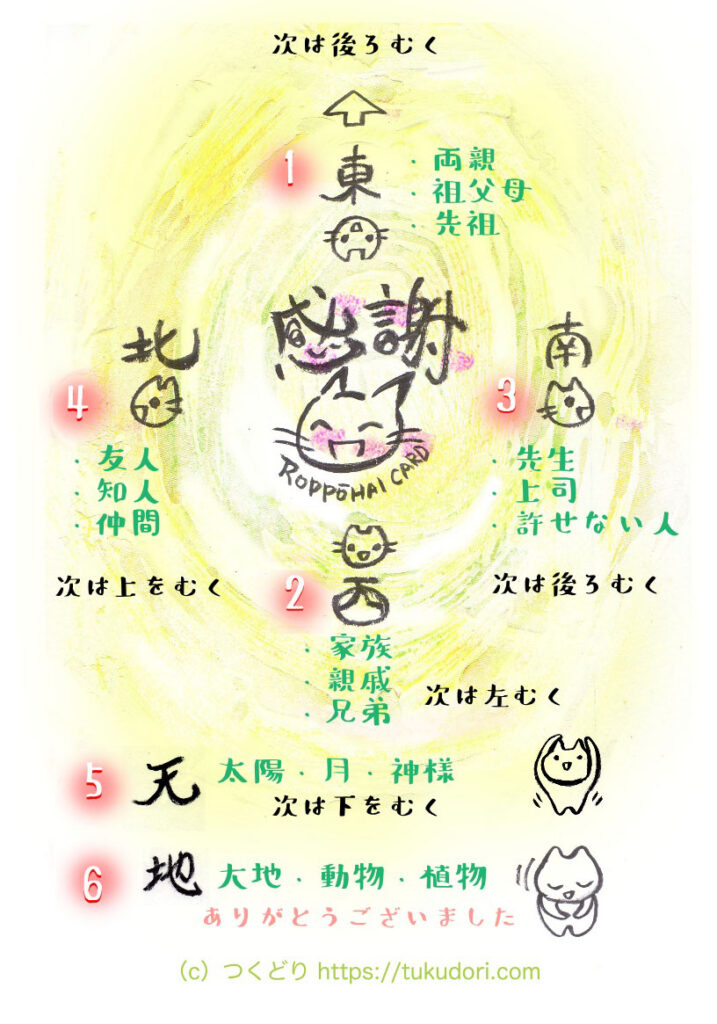 次は後ろむく
1
東
・両親
・祖父母
・先祖
感謝
ROPPŌHAI CARD
北
4
・友人
・知人
・仲間
次は上をむく
南
3
・先生
・上司
・許せない人
次は後ろむく
2
西
・家族
・親戚
・兄弟
次は左むく
5
天
太陽・月・神様
次は下をむく
6
地
大地・動物・植物
ありがとうございました
(c) つくどり https://tukudori.com